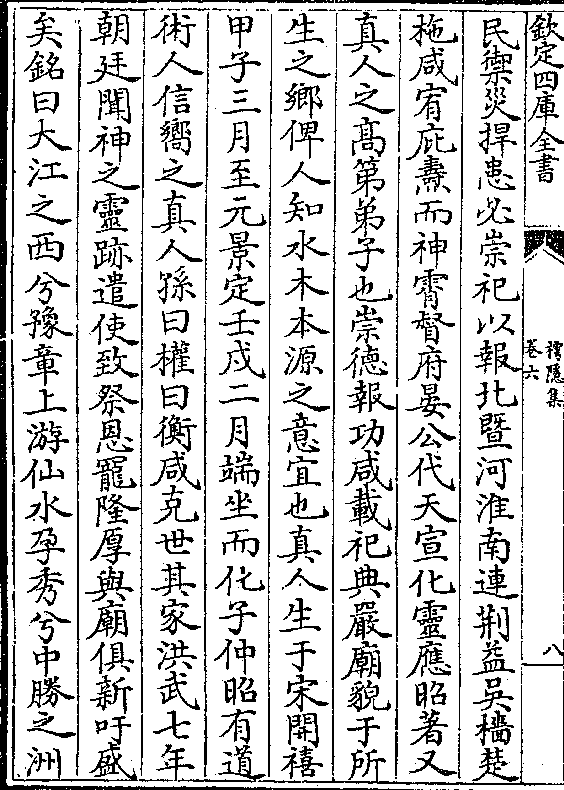 欽定四庫全書
樗隱集
卷六
八
民禦災捍患必崇祀以報北暨河淮南連荆益吳檣楚
柂咸宥庇燾而神霄督府晏公代天宣化靈應昭著又
真人之髙第弟子也崇德報功咸載祀典嚴廟貌于所
生之鄉俾人知水木本源之意宜也真人生于宋開禧
甲子三月至元景定壬戍二月端坐而化子仲昭有道
術人信嚮之真人孫曰權曰衡咸克世其家洪武七年
朝廷聞神之靈跡遣使致祭恩寵隆厚與廟俱新吁盛
矣銘曰大江之西兮豫章上游仙水孕秀兮中勝之洲